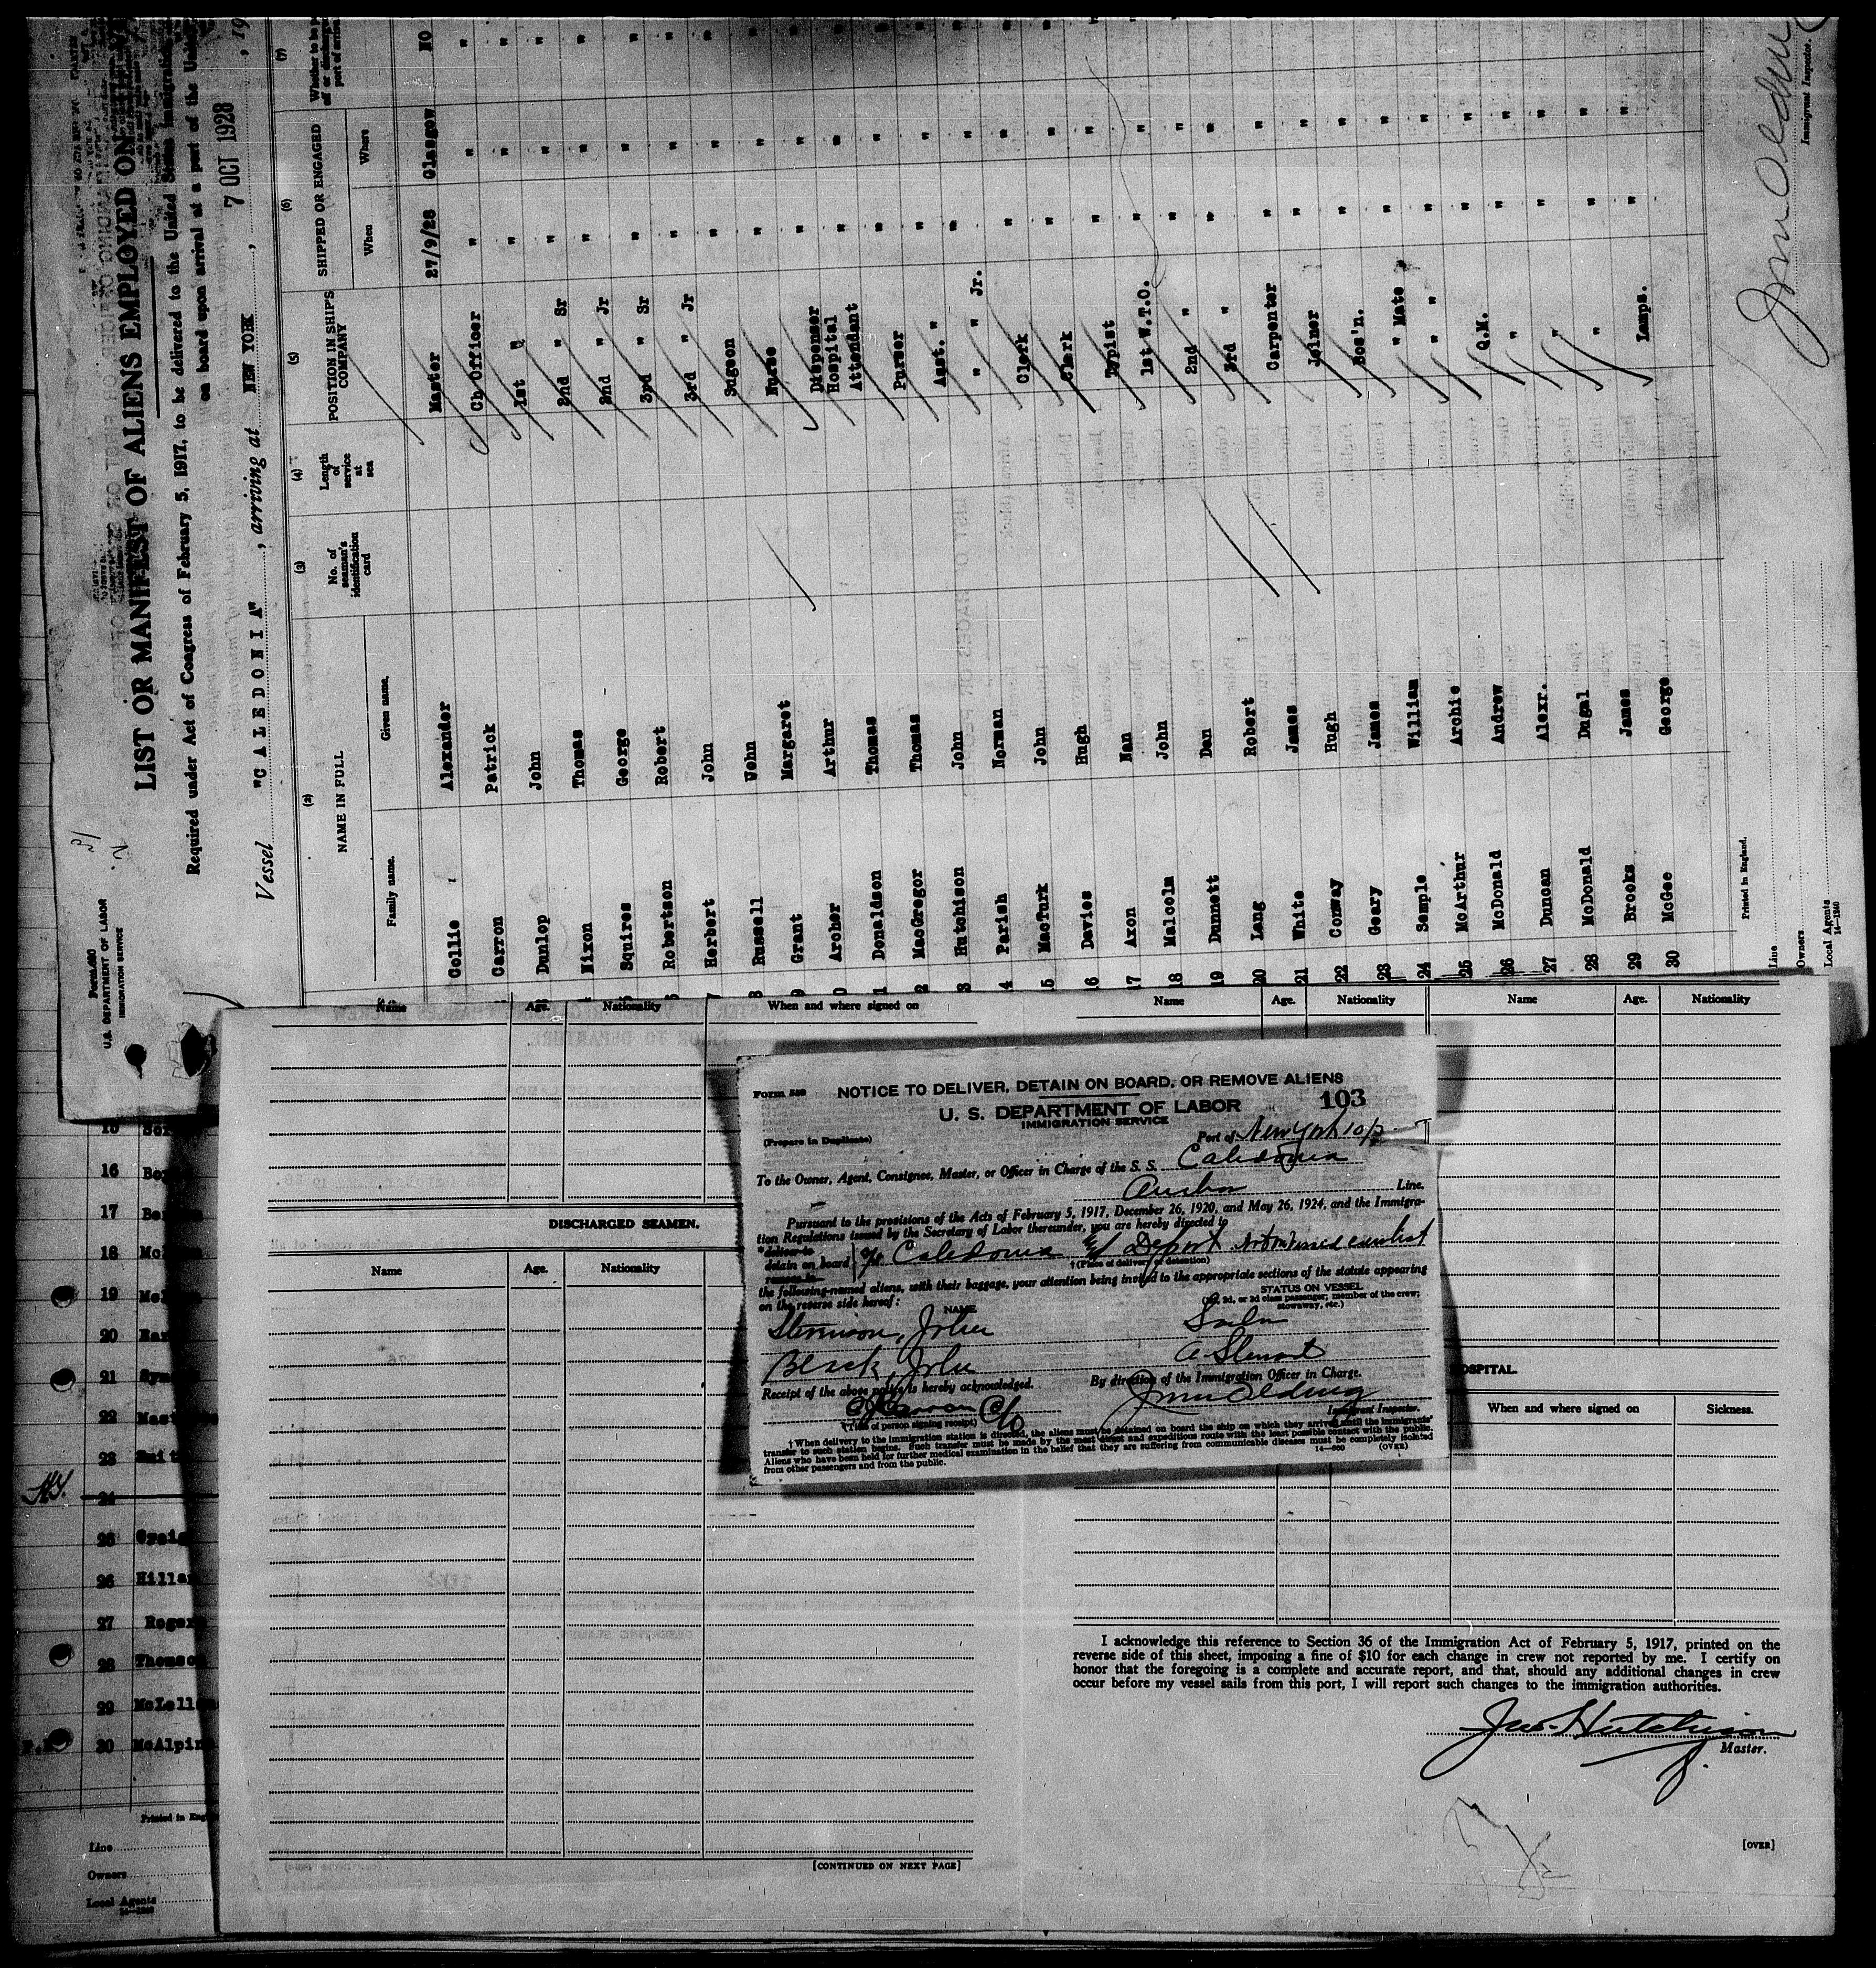 Form 680
U.S. DEPARTMENT OF LABOR
IMMIGRATION SERVICE
LIST OR MANIFEST OF ALIENS EMPLOYED ON
Required under Act of Congress of February 5, 1917, to be delivered to the United States Immigration
on board upon arrival at a port of the United
Vessel "CALEDONIA", arriving at NEW YORK, 7 OCT 1928, 19
(2) (3) (4) (5) (6) (7)
NAME IN FULL No. of seaman's identification card Length of service at sea POSITION IN SHIP'S COMPANY SHIPPED OR ENGAGED Whether to be
Family name. Given name. When Where
Collie Alexander Master 27/9/28 Glasgow NO
Carron Patrick Ch Officer " " "
Dunlop John 1st " " " "
Nixon Thomas 2nd " Sr " " "
Squires George 2nd " Jr " " "
Robertson Robert 3rd " Sr " " "
7 Herbert John 3rd " Jr " " "
8 Russell John Sugeon " " "
9 Grant Margaret Nurse " " "
0 Archer Arthur Dispenser " " "
1 Donaldson Thomas Hospital Attendant " " "
2 MacGregor Thomas Purser " " "
3 Hutchison John Asst. " " " "
4 Parish Norman " " Jr. " " "
5 MacTurk John Clerk " "
16 Davies Hugh Clerk " "
17 Axon Nan Typist " "
18 Malcolm John 1st W.T.O. " "
19 Dunnett Dan 2nd " " "
20 Lang Robert 3rd " " "
21 White James Carpenter " "
22 Conway Hugh Joiner " "
23 Geary James Bos'n. " "
24 Semple William " Mate " "
25 McArthur Archie " " " "
26 McDonald Andrew Q.M. " "
27 Duncan Alexr. " " "
28 McDonald Dugal " " "
29 Brooks James " " "
30 McGee George Lamps. " "
Printed in England.
Line
Owners
Local Agents
14—1240
Immigrant Inspector.
16
17
18
19
20
21
22
23
24
25 Craig
26
27 Roger
28 Thomson
29
30 McAlpin
Line
Owners
Local Agents
Name Age. Nationality When and where signed on Name Age. Nationality Name Age. Nationality
DISCHARGED SEAMEN.
Name Age. Nationality
Form 559 NOTICE TO DELIVER, DETAIN ON BOARD, OR REMOVE ALIENS
U. S. DEPARTMENT OF LABOR 103
IMMIGRATION SERVICE
(Prepare in Duplicate) Port of New York
To the Owner, Agent, Consignee, Master, or Officer in Charge of the S. S. Caledonia
Anchor Line.
Pursuant to the provisions of the Acts of February 5, 1917, December 26, 1920, and May 26, 1924, and the Immigra-
tion Regulations issued by the Secretary of Labor thereunder, you are hereby directed to
*deliver to
detain on board Caledonia Deport
remove to †(Place of delivery or detention)
the following-named aliens, with their baggage, your attention being invited to the appropriate sections of the statute appearing
on the reverse side hereof:
NAME STATUS ON VESSEL
(1st, 2d, or 3d class passenger; member of the crew;
stowaway, etc.)
John
Black, John
Receipt of the above notice is hereby acknowledged. By direction of the Immigration Officer in Charge.
(Title of person signing receipt) Immigrant Inspector.
†When delivery to the immigration station is directed, the aliens must be detained on board the ship on which they arrived until the immigrants'
transfer to such station begins. Such transfer must be made by the most direct and expeditious route with the least possible contact with the public.
Aliens who have been held for further medical examination in the belief that they are suffering from communicable diseases must be completely isolated
from other passengers and from the public. 14—660 (OVER)
OSPITAL.
When and where signed on Sickness.
I acknowledge this reference to Section 36 of the Immigration Act of February 5, 1917, printed on the
reverse side of this sheet, imposing a fine of $10 for each change in crew not reported by me. I certify on
honor that the foregoing is a complete and accurate report, and that, should any additional changes in crew
occur before my vessel sails from this port, I will report such changes to the immigration authorities.
Jno. Hutchison
Master.
[OVER]
[CONTINUED ON NEXT PAGE]